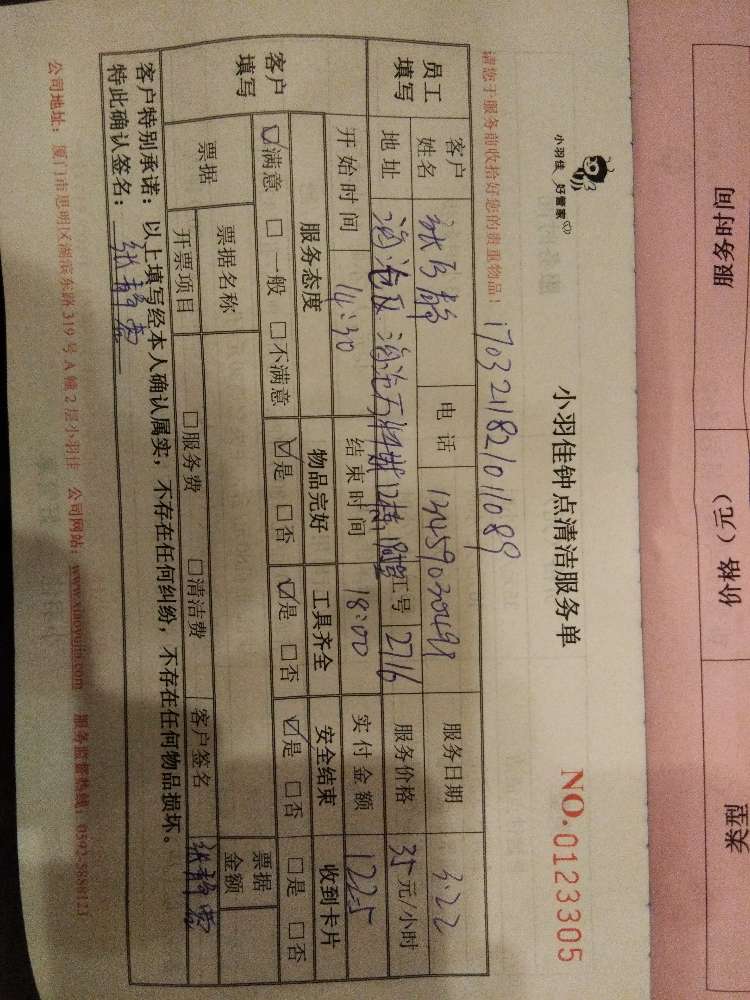 服务时间 价格（元） 类型
小羽佳 好管家
小羽佳钟点清洁服务单
NO.0123305
请您于服务前收拾好您的贵重物品！
1703211821011089
员工填写 客户姓名 电话 13459030491 服务日期 3.22
地址 海沧区海沧万科城12栋 工号 2716 服务价格 35元/小时
客户填写 开始时间 14:30 结束时间 18:00 实付金额 122.5
服务态度 物品完好 工具齐全 安全结束 收到卡片
☑满意 □一般 □不满意 ☑是 □否 ☑是 □否 ☑是 □否 □是 □否
票据 票据名称 票据金额
开票项目 □服务费 □清洁费 客户签名 张静雯
客户特别承诺：以上填写经本人确认属实，不存在任何纠纷，不存在任何物品损坏。
特此确认签名：张静雯
公司地址：厦门市思明区湖滨东路319号A幢2层小羽佳 公司网站：www.xiaoyujia.com 服务监督热线：0592-5888123